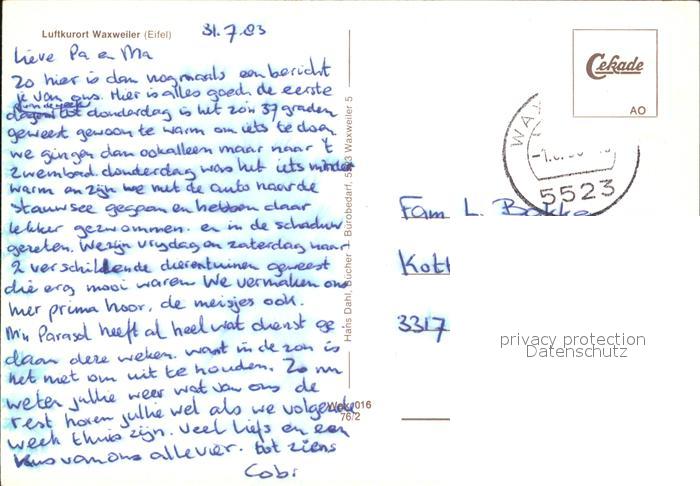 Luftkurort Waxweiler (Eifel)
31.7.83
Lieve Pa en Ma
Zo hier is dan nogmaals een bericht
je van ons. Hier is alles goed. de eerste
dagen tot donderdag is het zo'n 37 graden
geweest gewoon te warm om iets te doen
we gingen dan ook alleen maar naar 't
zwembad. donderdag was het iets minder
warm en zijn we met de auto naar de
stauwsee gegaan en hebben daar
lekker gezwommen. en in de schaduw
gezeten. We zijn vrijdag en zaterdag naar
2 verschillende dierentuinen geweest
die erg mooi waren. We vermaken ons
hier prima hoor, de meisjes ook.
M'n Parasol heeft al heel wat dienst ge
daan deze weken. want in de zon is
het niet om uit te houden. Zo nu
weten jullie weer wat van ons de
rest horen jullie wel als we volgende
week thuis zijn. Veel liefs en een
kus van ons alle vier. tot ziens
Cobi
Hans Dahl, Bücher - Bürobedarf, 5523 Waxweiler 5
Wax 016
76/2
Cekade
AO
5523
Fam L. Bakke
Kotl
3317
privacy protection
Datenschutz